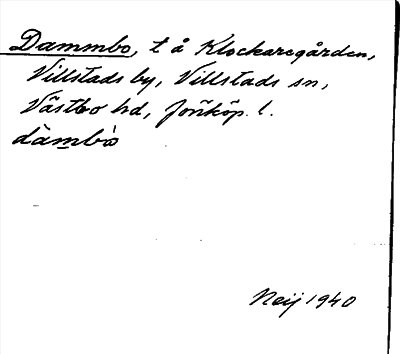 Dammbo, t å Klockaregården,
Villstads by, Villstads sn,
Västbo hd, Jönköp. l.
dàmbò
Neij 1940